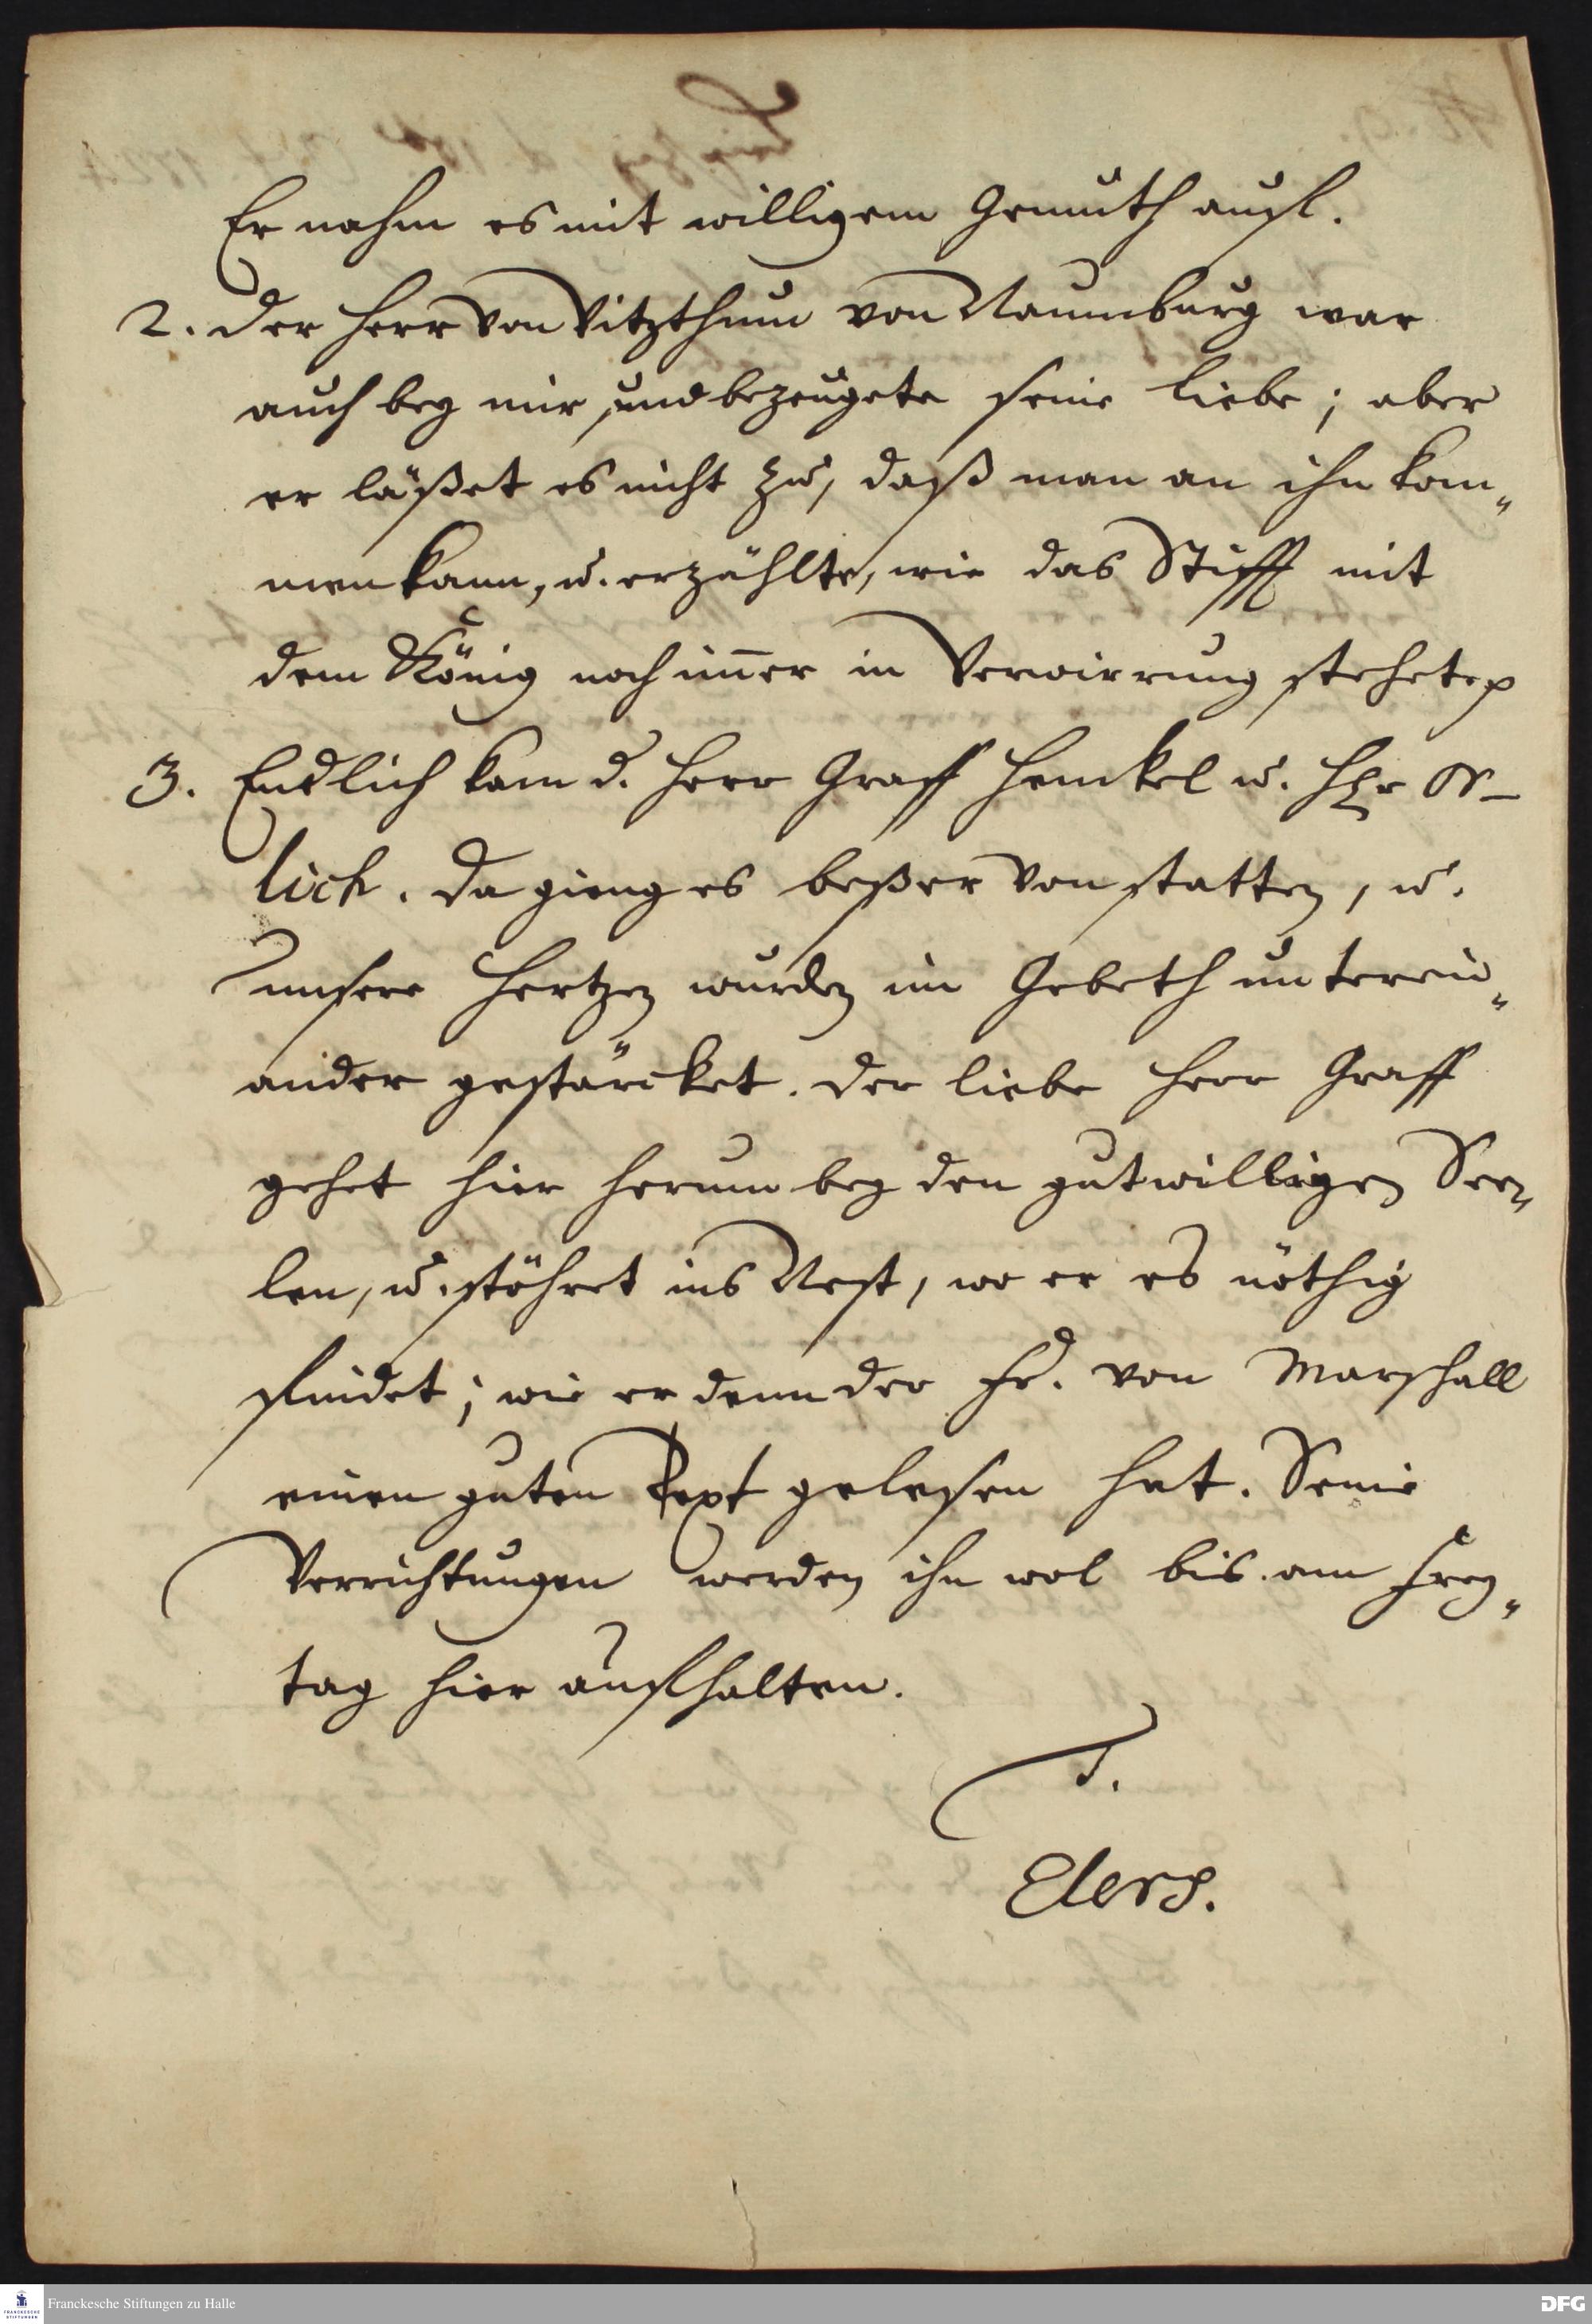 Er nahm es mit willigem Gemüth auf.
2. Der Herr von Vitzthum von Naumburg war
auch bey mir, und bezeugete seine Liebe; aber
er läßet es nicht zu, daß man an ihn kom„
men kann, u. erzählte, wie das Stifft mit
dem König noch im̅er in Verwirrung stehet ꝛc
3. Endlich kam d. Herr Graff Henckel u. Hr
lich. Da gieng es beßer von statten, u.
unsere Hertzen wurden im Gebeth unterein„
ander gestärcket. Der liebe Herr Graff
gehet hier herum bey den gutwilligen See„
len, u. stöhret ins Nest, wo er es nöthig
findet; wie er denn der Fr. von Marschall
einen guten Text gelesen hat. Seine
Verrichtungen werden ihn wol bis am Frey„
tag hier aufhalten.
T.
Elers.
Franckesche Stiftungen zu Halle
DFG